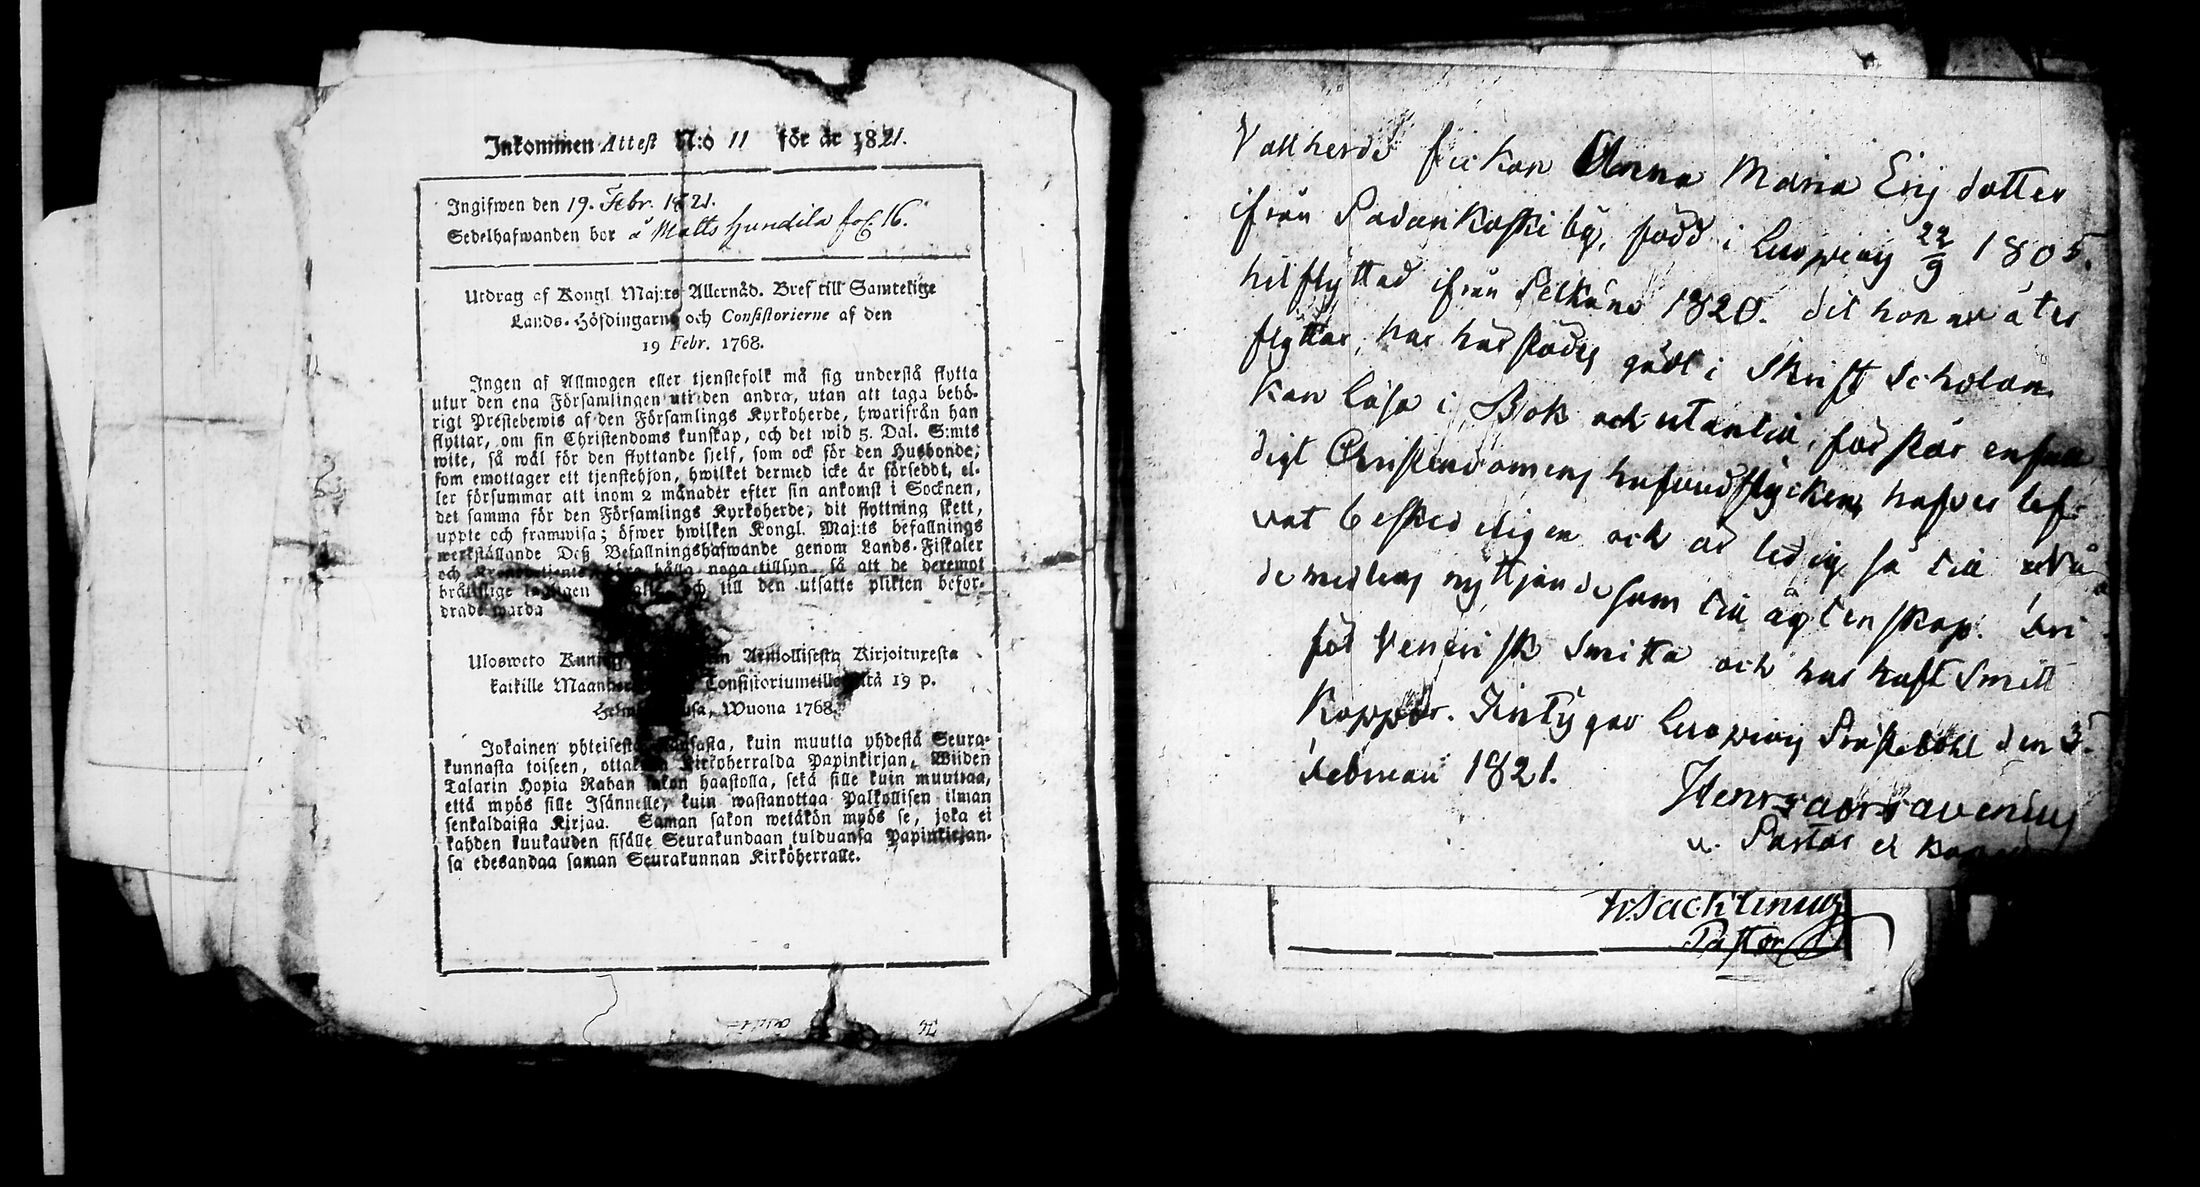 Inkommen Attest N:o 11 för år 1821.
Ingifwen den 19. Febr. 1821.
Sedelhafwanden bor å Matts Hundila fol. 16.
Utdrag af Kongl. Maj:ts Allernåd. Bref till Samtelige
Lands-Höfdingarne och Consistorierne af den
19 Febr. 1768.
Ingen af Allmogen eller tjenstefolk må sig understå flytta
utur den ena Församlingen uti den andra, utan att taga behö-
rigt Prestebewis af den Församlings Kyrkoherde, hwarifrån han
flyttar, om sin Christendoms kunskap, och det wid 5. Dal. S:mts
wite, så wäl för den flyttande sjelf, som ock för den Husbonde,
som emottager ett tjenstehjon, hwilket dermed icke är försedt, el-
ler försummar att inom 2 månader efter sin ankomst i Socknen,
det samma för den Församlings Kyrkoherde, dit flyttning skett,
uppte och framwisa; öfwer hwilken Kongl. Maj:ts befallnings
werkställande Deß Befallningshafwande genom Lands-Fiskaler
och hålla noga tillsyn, så att de deremot
bråttslige och till den utsatte plikten befor-
drade warda
Ulosweto Armollisesta Kirjoituxesta
kaikille Consistoriumeille 19 p.
Wuona 1768.
Jokainen yhteisestä kuin muutta yhdestä Seura-
kunnasta toiseen, Kirkoherralda Papinkirjan, Wiiden
Talarin Hopia Rahan sakon haastolla, sekä sille kuin muuttaa,
että myös sille Isännelle, kuin wastanottaa Palkollisen ilman
senkaldaista Kirjaa. Saman sakon wetäkön myös se, joka ei
kahden kuukauden sisälle Seurakundaan tulduansa Papinkirjan-
sa edesandaa saman Seurakunnan Kirkoherralle.
Vallherds fickan Anna Maria Erij dotter
ifrån Padankoski by, född i Luopiois 22/9 1805.
hitflyttad ifrån Pelkäne 1820. dit hon nu åter
flyttar, har härstädes gådt i Skrift Scholan.
Kan läsa i Bok och utantill, förstår enfal
digt Christendomens hufvudstycken, hafver lef-
vat beskedeligen och är ledig så till Nå
demedlens nyttjande som till ägtenskap. Fri
för Venerisk Smitta och har haft Smitt
Koppor. Intygar Luopiois Prästebohl den 3.
Februari 1821.
u. Pastor et
Pastor